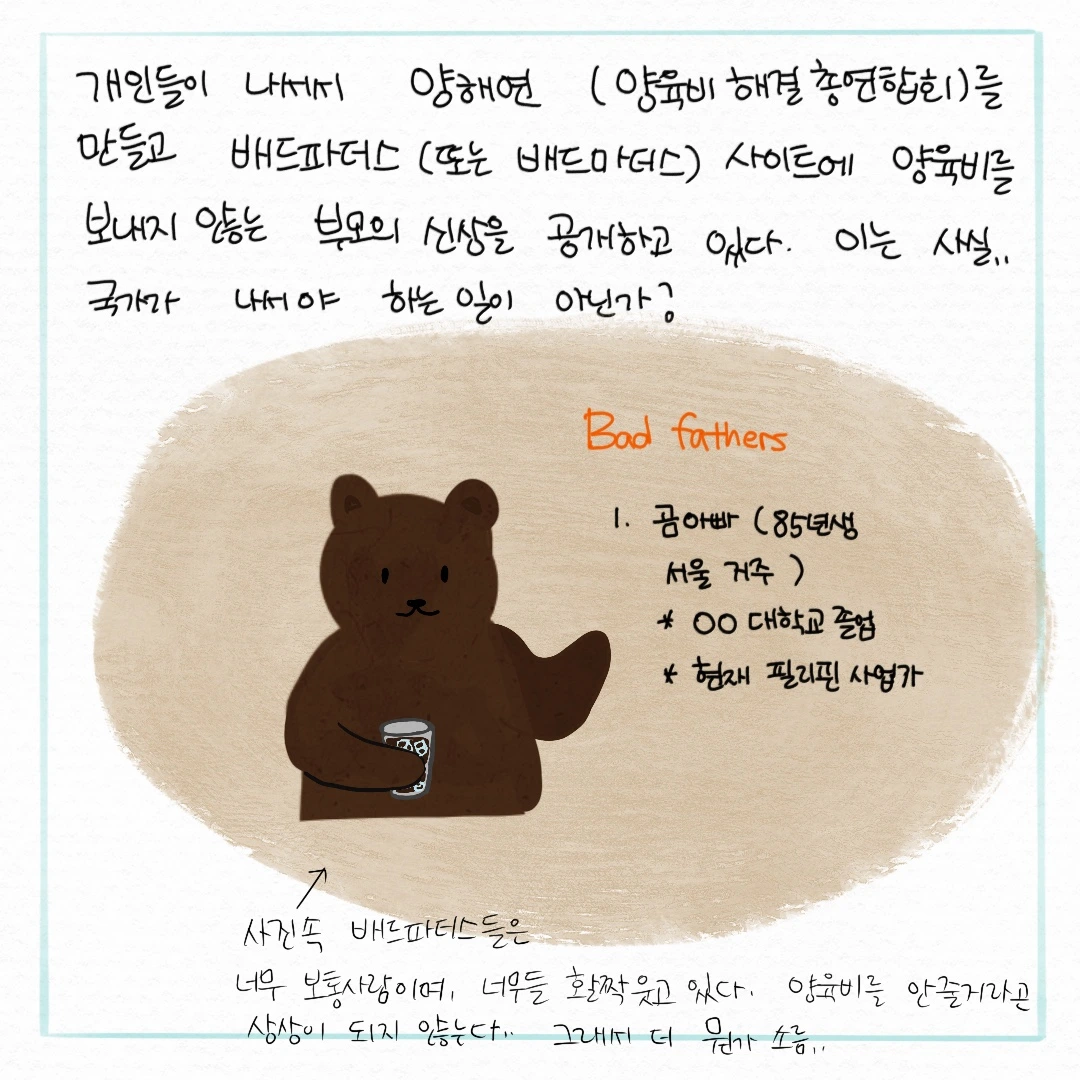 개인들이 나서서 양해연 (양육비 해결 총연합회)를
만들고 배드파더스 (또는 배드마더스) 사이트에 양육비를
보내지 않는 부모의 신상을 공개하고 있다. 이는 사실..
국가가 나서야 하는 일이 아닌가?
Bad fathers
1. 곰아빠 (85년생
서울 거주 )
* ○○ 대학교 졸업
* 현재 필리핀 사업가
사진속 배드파더스들은
너무 보통사람이며, 너무들 활짝 웃고 있다. 양육비를 안줄거라곤
상상이 되지 않는다.. 그래서 더 뭔가 소름..